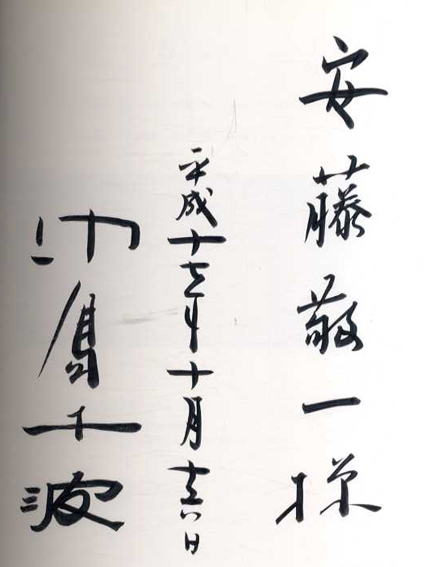 安藤敬一様
平成十七年十月十六日
中島千波